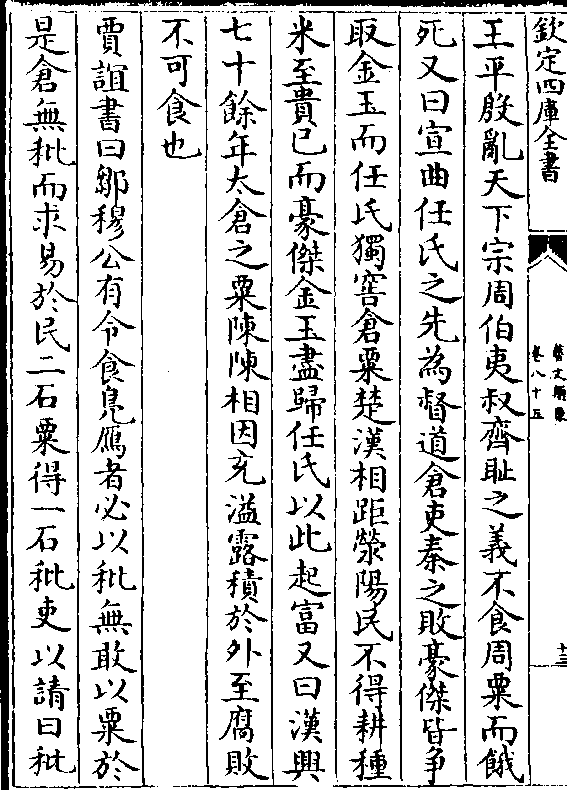 欽定四庫全書
藝文類聚
卷八十五
十三
王平殷亂天下宗周伯夷叔齊耻之義不食周粟而餓
死又曰宣曲任氏之先為督道倉吏秦之敗豪傑皆争
取金玉而任氏獨窖倉粟楚漢相距滎陽民不得耕種
米至貴已而豪傑金玉盡歸任氏以此起富又曰漢興
七十餘年太倉之粟陳陳相因充溢露積於外至腐敗
不可食也
賈誼書曰鄒穆公有令食鳬鴈者必以秕無敢以粟於
是倉無秕而求易於民二石粟得一石秕吏以請曰秕